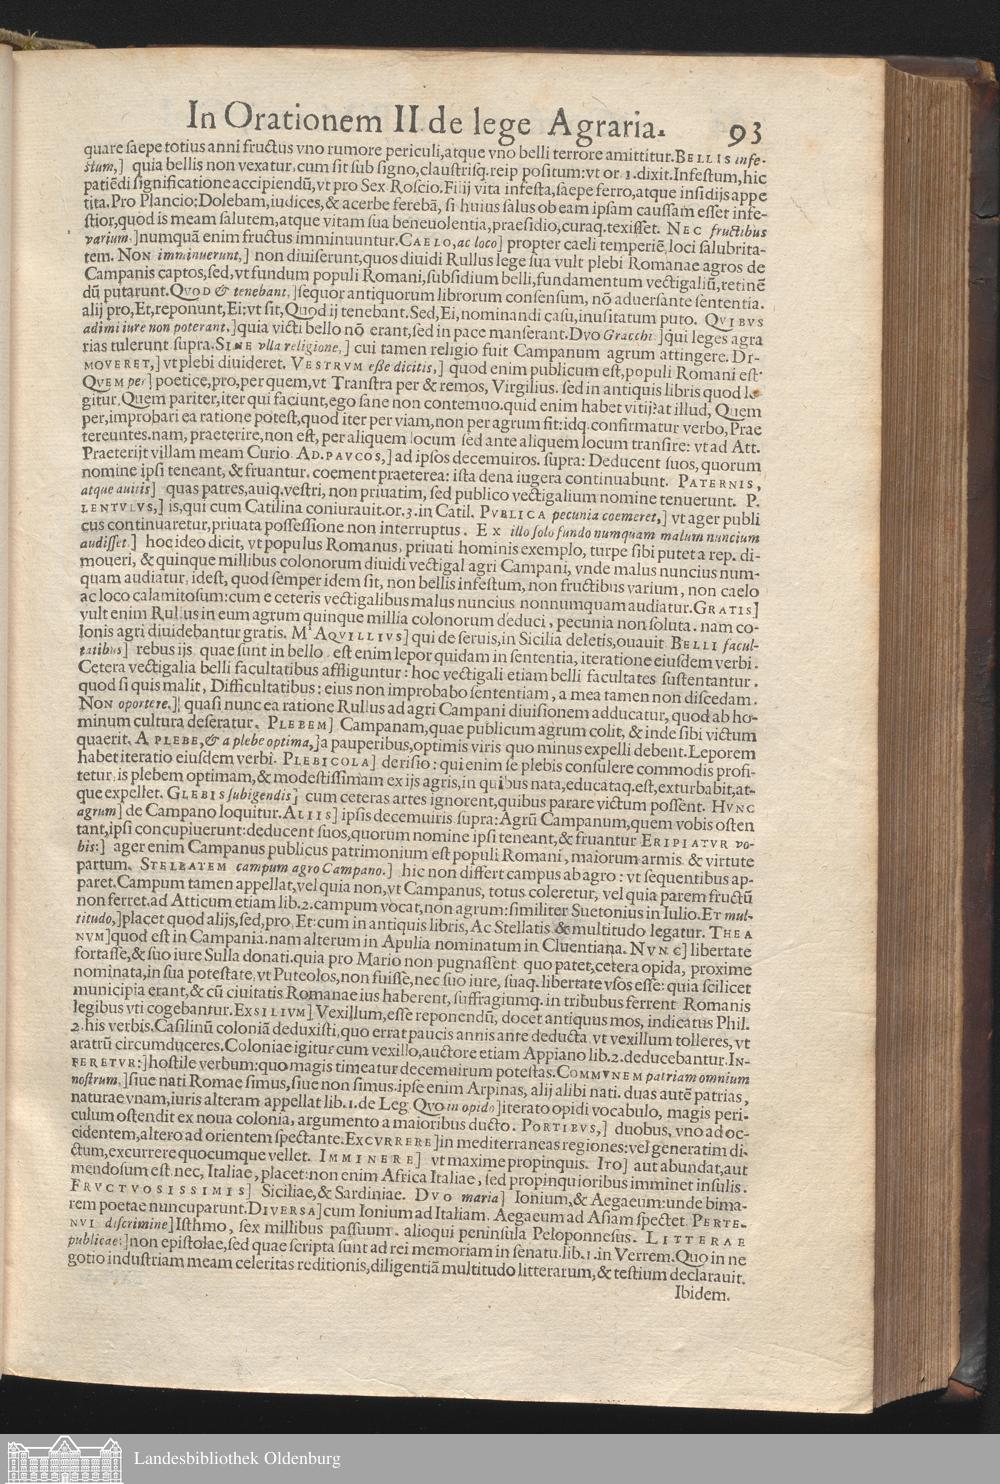 In Orationem II de lege Agraria. 93
quare saepe totius anni fructus vno rumore periculi, atque vno belli terrore amittitur. BELLIS infe-
stum,] quia bellis non vexatur. cum sit sub signo, claustrisq. reip positum: vt or 1. dixit. Infestum, hic
patiēdi significatione accipiendū, vt pro Sex Roscio. Filij vita infesta, saepe ferro, atque insidijs appe
tita. Pro Plancio: Dolebam, iudices, & acerbe ferebā, si huius salus ob eam ipsam caussam esset infe-
stior, quod is meam salutem, atque vitam sua beneuolentia, praesidio, curaq. texisset. NEC fructibus
varium.] numquā enim fructus imminuuntur. CAELO, ac loco] propter caeli temperiē, loci salubrita-
tem. NON imminuerunt,] non diuiserunt, quos diuidi Rullus lege sua vult plebi Romanae agros de
Campanis captos, sed, vt fundum populi Romani, subsidium belli, fundamentum vectigaliū, retinē
dū putarunt. QVOD & tenebant,] sequor antiquorum librorum consensum, nō aduersante sententia.
alij pro, Et, reponunt, Ei: vt sit, Quod ij tenebant. Sed, Ei, nominandi casu, inusitatum puto. QVIBVS
adimi iure non poterant,] quia victi bello nō erant, sed in pace manserant. DVO Gracchi ] qui leges agra
rias tulerunt supra. SINE vlla religione,] cui tamen religio fuit Campanum agrum attingere. DI-
MOVERET,] vt plebi diuideret. VESTRVM esse dicitis,] quod enim publicum est, populi Romani est.
QVEM per] poetice, pro, per quem, vt Transtra per & remos, Virgilius. sed in antiquis libris quod le
gitur, Quem pariter, iter qui faciunt, ego sane non contemno. quid enim habet vitij? at illud, Quem
per, improbari ea ratione potest, quod iter per viam, non per agrum fit: idq. confirmatur verbo, Prae
tereuntes. nam, praeterire, non est, per aliquem locum sed ante aliquem locum transire: vt ad Att.
Praeterijt villam meam Curio AD. PAVCOS,] ad ipsos decemuiros. supra: Deducent suos, quorum
nomine ipsi teneant, & fruantur. coement praeterea: ista dena iugera continuabunt. PATERNIS,
atque auitis] quas patres, auiq. vestri, non priuatim, sed publico vectigalium nomine tenuerunt. P.
LENTVLVS,] is, qui cum Catilina coniurauit. or. 3. in Catil. PVBLICA pecunia coemeret,] vt ager publi
cus continuaretur, priuata possessione non interruptus. EX illo solo fundo numquam malum nuncium
audisset.] hoc ideo dicit, vt populus Romanus, priuati hominis exemplo, turpe sibi putet a rep. di-
moueri, & quinque millibus colonorum diuidi vectigal agri Campani, vnde malus nuncius num-
quam audiatur, idest, quod semper idem sit, non bellis infestum, non fructibus varium, non caelo
ac loco calamitosum: cum e ceteris vectigalibus malus nuncius nonnumquam audiatur. GRATIS]
vult enim Rullus in eum agrum quinque millia colonorum deduci, pecunia non soluta. nam co-
lonis agri diuidebantur gratis. M' AQVILLIVS] qui de seruis, in Sicilia deletis, ouauit BELLI facul-
tatibus] rebus ijs quae sunt in bello. est enim lepor quidam in sententia, iteratione eiusdem verbi.
Cetera vectigalia belli facultatibus affliguntur: hoc vectigali etiam belli facultates sustentantur.
quod si quis malit, Difficultatibus: eius non improbabo sententiam, a mea tamen non discedam.
NON oportere,] quasi nunc ea ratione Rullus ad agri Campani diuisionem adducatur, quod ab ho-
minum cultura deseratur. PLEBEM] Campanam, quae publicum agrum colit, & inde sibi victum
quaerit. A PLEBE, & a plebe optima,] a pauperibus, optimis viris quo minus expelli debent. Leporem
habet iteratio eiusdem verbi. PLEBICOLA] derisio: qui enim se plebis consulere commodis profi-
tetur, is plebem optimam, & modestissimam ex ijs agris, in quibus nata, educataq. est, exturbabit, at-
que expellet. GLEBIS subigendis] cum ceteras artes ignorent, quibus parare victum possent. HVNC
agrum] de Campano loquitur. ALIIS] ipsis decemuiris supra: Agrū Campanum, quem vobis osten
tant, ipsi concupiuerunt: deducent suos, quorum nomine ipsi teneant, & fruantur ERIPIATVR vo-
bis:] ager enim Campanus publicus patrimonium est populi Romani, maiorum armis & virtute
partum. STELLATEM campum agro Campano.] hic non differt campus ab agro: vt sequentibus ap-
paret. Campum tamen appellat, vel quia non, vt Campanus, totus coleretur, vel quia parem fructū
non ferret. ad Atticum etiam lib. 2. campum vocat, non agrum: similiter Suetonius in Iulio. ET mul-
titudo,] placet quod alijs, sed, pro, Et: cum in antiquis libris, Ac Stellatis & multitudo legatur. THEA
NVM] quod est in Campania. nam alterum in Apulia nominatum in Cluentiana. NVNC] libertate
fortasse, & suo iure Sulla donati. quia pro Mario non pugnassent quo patet, cetera opida, proxime
nominata, in sua potestate, vt Puteolos, non fuisse, nec suo iure, suaq. libertate vsos esse: quia scilicet
municipia erant, & cū ciuitatis Romanae ius haberent, suffragiumq. in tribubus ferrent Romanis
legibus vti cogebantur. EXSILIVM] Vexillum, esse reponendū, docet antiquus mos, indicatus Phil.
2. his verbis. Casilinū coloniā deduxisti, quo errat paucis annis ante deducta vt vexillum tolleres, vt
aratrū circumduceres. Coloniae igitur cum vexillo, auctore etiam Appiano lib. 2. deducebantur. IN-
FERETVR:] hostile verbum: quo magis timeatur decemuirum potestas. COMMVNEM patriam omnium
nostrum,] siue nati Romae simus, siue non simus. ipse enim Arpinas, alij alibi nati. duas autē patrias,
naturae vnam, iuris alteram appellat lib. 1. de Leg QVO in opido] iterato opidi vocabulo, magis peri-
culum ostendit ex noua colonia, argumento a maioribus ducto. PORTIBVS,] duobus, vno ad oc-
cidentem, altero ad orientem spectante. EXCVRRERE] in mediterraneas regiones: vel generatim di-
ctum, excurrere quocumque vellet. IMMINERE] vt maxime propinquis. ITO] aut abundat, aut
mendosum est. nec, Italiae, placet: non enim Africa Italiae, sed propinquioribus imminet insulis.
FRVCTVOSISSIMIS] Siciliae, & Sardiniae. DVO maria] Ionium, & Aegaeum: unde bima-
rem poetae nuncuparunt. DIVERSA] cum Ionium ad Italiam. Aegaeum ad Asiam spectet. PERTE-
NVI discrimine] Isthmo, sex millibus passuum. alioqui peninsula Peloponnesus. LITTERAE
publicae:] non epistolae, sed quae scripta sunt ad rei memoriam in senatu. lib. 1. in Verrem. Quo in ne
gotio industriam meam celeritas reditionis, diligentiā multitudo litterarum, & testium declarauit.
Ibidem.
Landesbibliothek Oldenburg